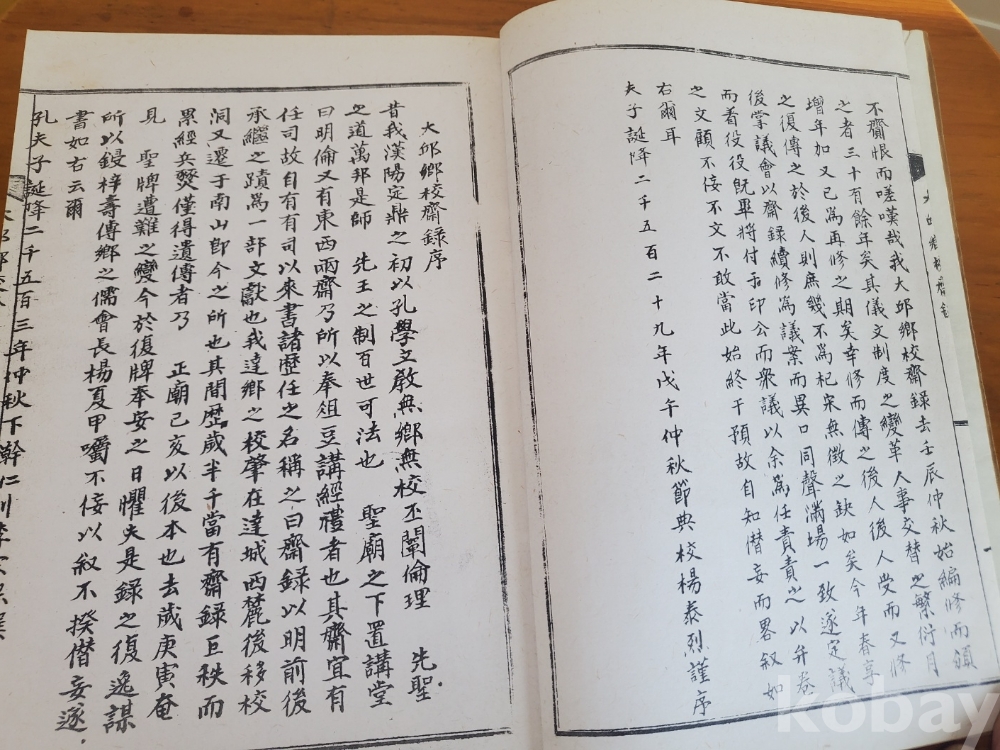 大邱鄉校齋錄
不齎恨而嗟嘆哉我大邱鄉校齋錄去壬辰仲秋始編修而頒
之者三十有餘年矣其儀文制度之變革人事交替之繁衍月
增年加又已爲再修之期矣幸修而傳之後人後人受而又修
之復傳之於後人則無幾不爲杞宋無徵之缺如矣今年春享
後掌議會以齋錄續修爲議案而異口同聲滿場一致遂定議
而着役役旣畢將付石印公而衆議以余爲任責責之以弁卷
之文顧不佞不文不敢當此始終干預故自知僭妄而畧叙如
右爾耳
夫子誕降二千五百二十九年戊午仲秋節典校楊泰烈謹序
大邱鄉校齋錄序
昔我漢陽定鼎之初以孔學立敎無鄉無校丕闡倫理 先聖
之道萬邦是師 先王之制百世可法也 聖廟之下置講堂
曰明倫又有東西兩齋乃所以奉俎豆講經禮者也其齋宜有
任司故自有有司以來書諸歷任之名稱之曰齋錄以明前後
承繼之蹟爲一部文獻也我達鄉之校肇在達城西麓後移校
洞又遷于南山卽今之所也其間歷歲半千當有齋錄巨秩而
累經兵燹僅得遺傳者乃 正廟己亥以後本也去歲庚寅奄
見 聖牌遭難之變今於復牌奉安之日懼夫是錄之復逸謀
所以鋟梓壽傳鄉之儒會長楊夏甲囑不佞以叙不揆僭妄遂
書如右云爾
孔夫子誕降二千五百三年仲秋下澣仁川李
kobay